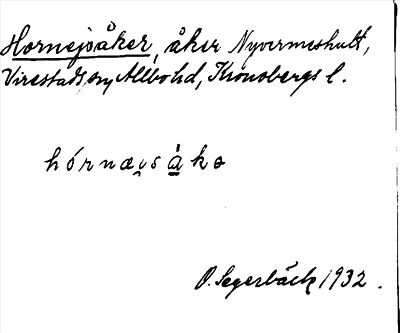 Hornejsåker, åker Nyvermeshult,
Virestads sn, Allbo hd, Kronobergs l.
hórnæi̯så̱kə
P. Segerbäck 1932.